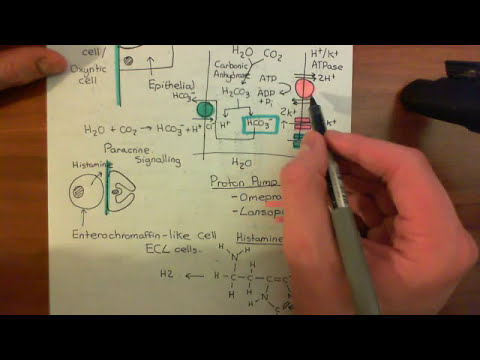 cell/
Oxyntic
cell
Epithelial
H₂O
CO₂
Carbonic
Anhydrase
H₂CO₃
ATP
ADP
+Pi
H⁺/K⁺
ATPase
2H⁺
HCO₃⁻
Cl⁻
H⁺
HCO₃⁻
2K⁺
K⁺
H₂O + CO₂ → HCO₃⁻ + H⁺
H₂O
Paracrine
Signalling
Histamine
Proton Pump
- Omepra
- Lansop
Enterochromaffin-like cell
ECL cells.
Histamine
H2 ←
H
N
H
H H
H-C-C-C=C
H H
N
H